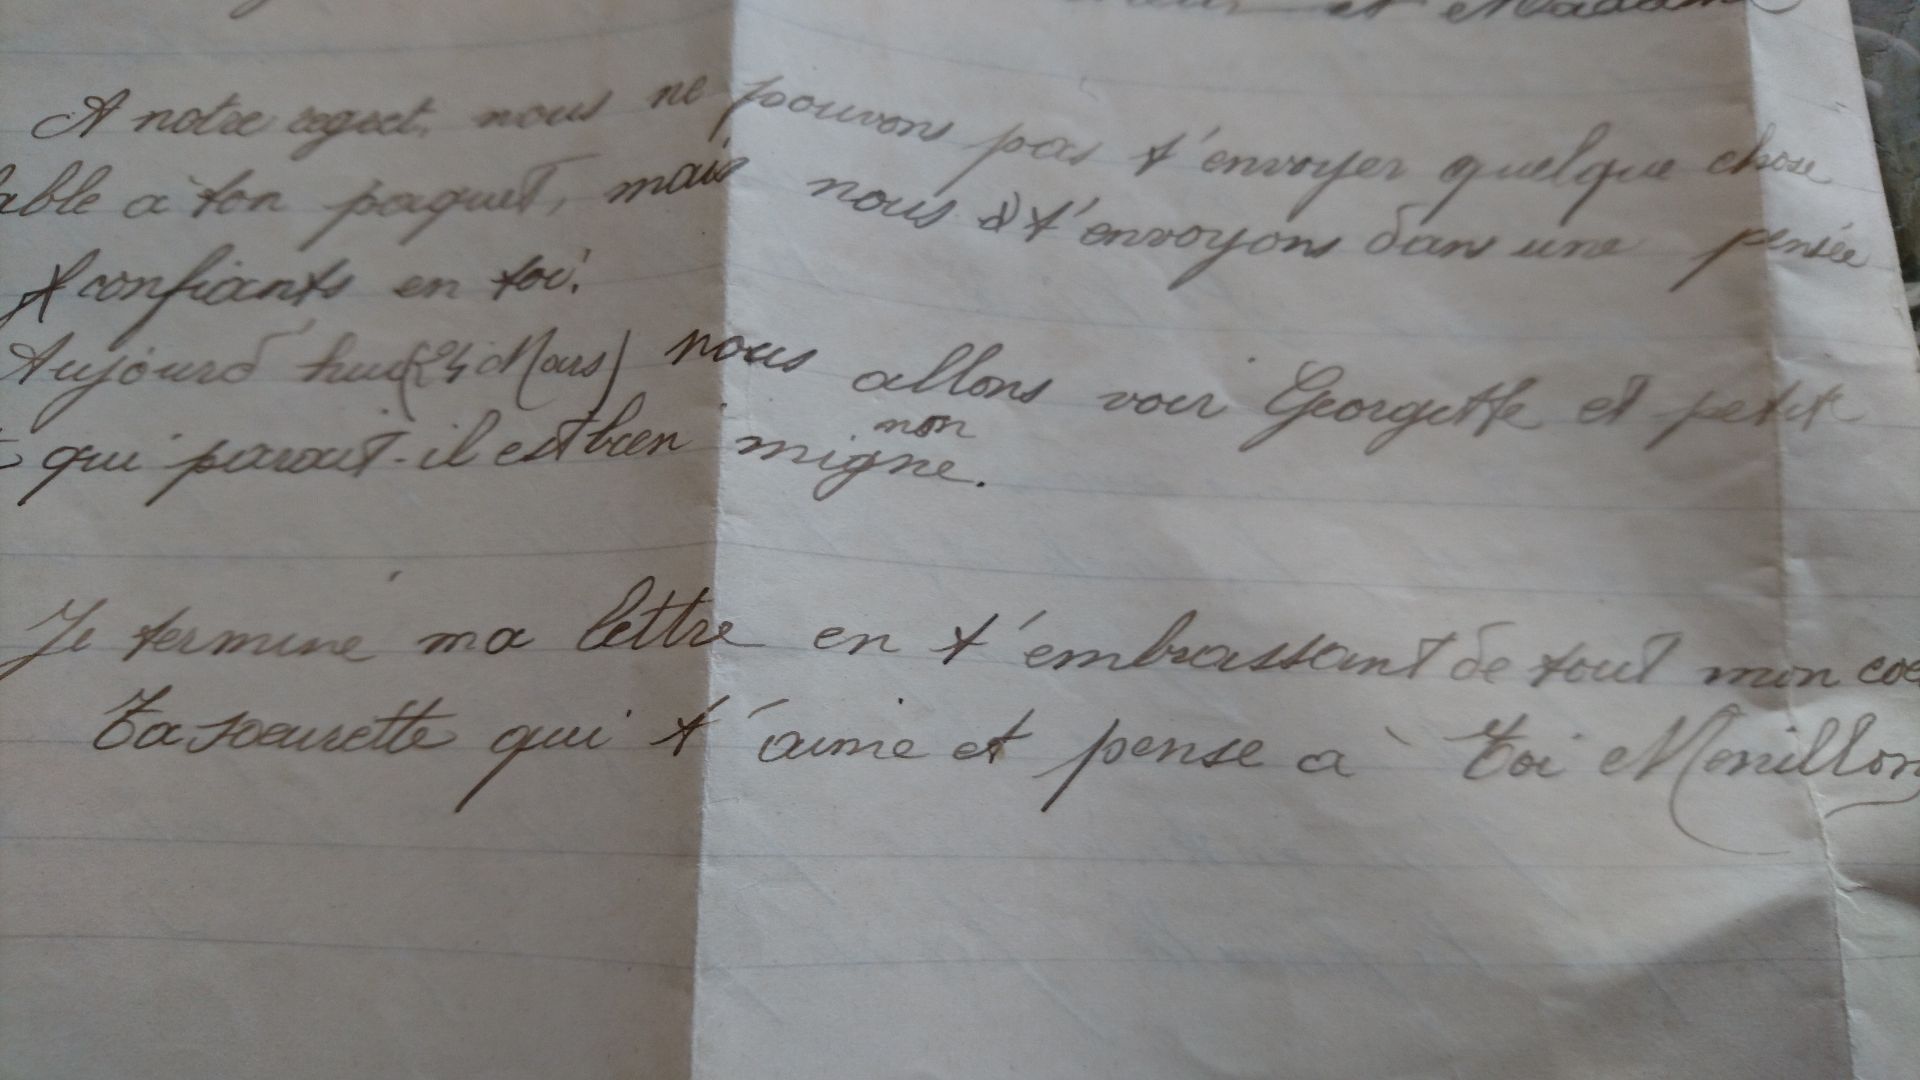 et Madame
A notre regret, nous ne pouvons pas t'envoyer quelque chose
able à ton paquet, mais nous t'envoyons dans une pensée
confiants en toi!
Aujourd'hui (24 Mars) nous allons voir Georgette et petit
qui parait-il est bien migne.
non
Je termine ma lettre en t'embrassant de tout mon coe
Ta soeurette qui t'aime et pense à Toi